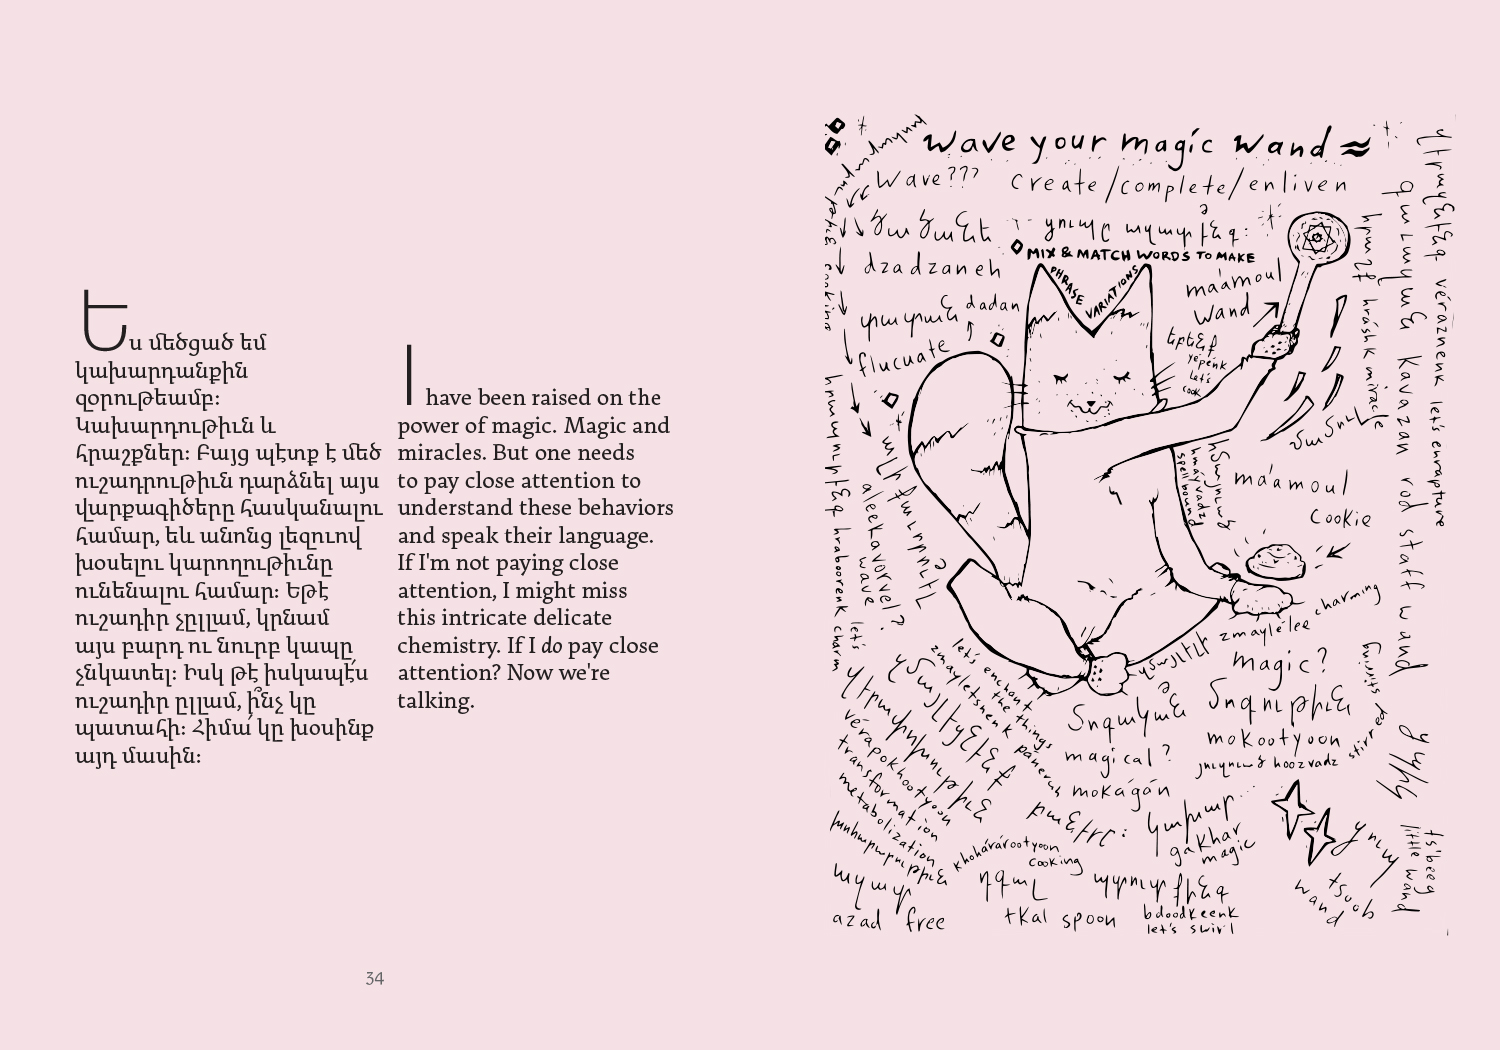 Ես մեծցած եմ
կախարդանքին
զօրութեամբ։
Կախարդութիւն և
հրաշքներ։ Բայց պէտք է մեծ
ուշադրութիւն դարձնել այս
վարքագիծերը հասկանալու
համար, եւ անոնց լեզուով
խօսելու կարողութիւնը
ունենալու համար։ Եթէ
ուշադիր չըլլամ, կրնամ
այս բարդ ու նուրբ կապը
չնկատել։ Իսկ թէ իսկապէ՛ս
ուշադիր ըլլամ, ի՞նչ կը
պատահի։ Հիմա՛ կը խօսինք
այդ մասին։
I have been raised on the
power of magic. Magic and
miracles. But one needs
to pay close attention to
understand these behaviors
and speak their language.
If I'm not paying close
attention, I might miss
this intricate delicate
chemistry. If I do pay close
attention? Now we're
talking.
34
wave your magic wand
Wave??? create/complete/enliven
ծածանե
MIX & MATCH WORDS TO MAKE
PHRASE VARIATIONS
dzadzaneh
տատան dadan
flucuate
máamoul
wand
եփենք
yépénk
let's
cook
հրաշք hráshk miracle
գաւազան kavazan rod staff wand
véraznenk let's enrapture
մամուլ
máamoul
cookie
հմայուած
hmáyvadz
spellbound
ալիքաւորուել
aleekavorvel?
wave
hraboorenk let's charm
cooking
zmaylélee charming
magic?
մոգութիւն
mokootyoon
մոգական
magical?
mokágán
յուզուած hoozvadz
stirred
let's enchant
the things
zmayletsnenk pánerus
վերափոխութիւն
vérapokhootyoon
transformation
metabolization
խոհարարութիւն
khohárárootyoon
cooking
կախար
gakhar
magic
ազատ
azad free
դգալ
tkal spoon
պտուտքինք
bdoodkeenk
let's swirl
ցուպ
tsoob
wand
ցպիկ
ts'beeg
little wand